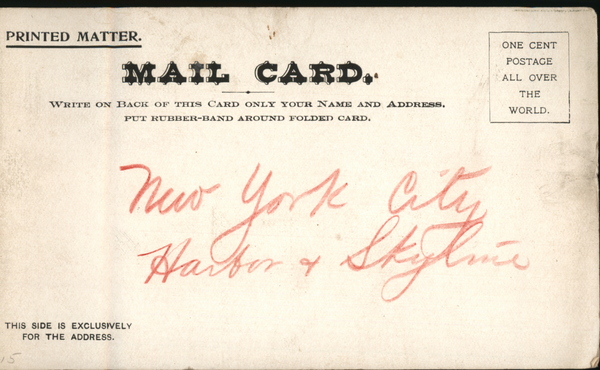 PRINTED MATTER.
MAIL CARD.
WRITE ON BACK OF THIS CARD ONLY YOUR NAME AND ADDRESS,
PUT RUBBER-BAND AROUND FOLDED CARD.
ONE CENT
POSTAGE
ALL OVER
THE
WORLD.
New York City
Harbor & Skyline
THIS SIDE IS EXCLUSIVELY
FOR THE ADDRESS.
15